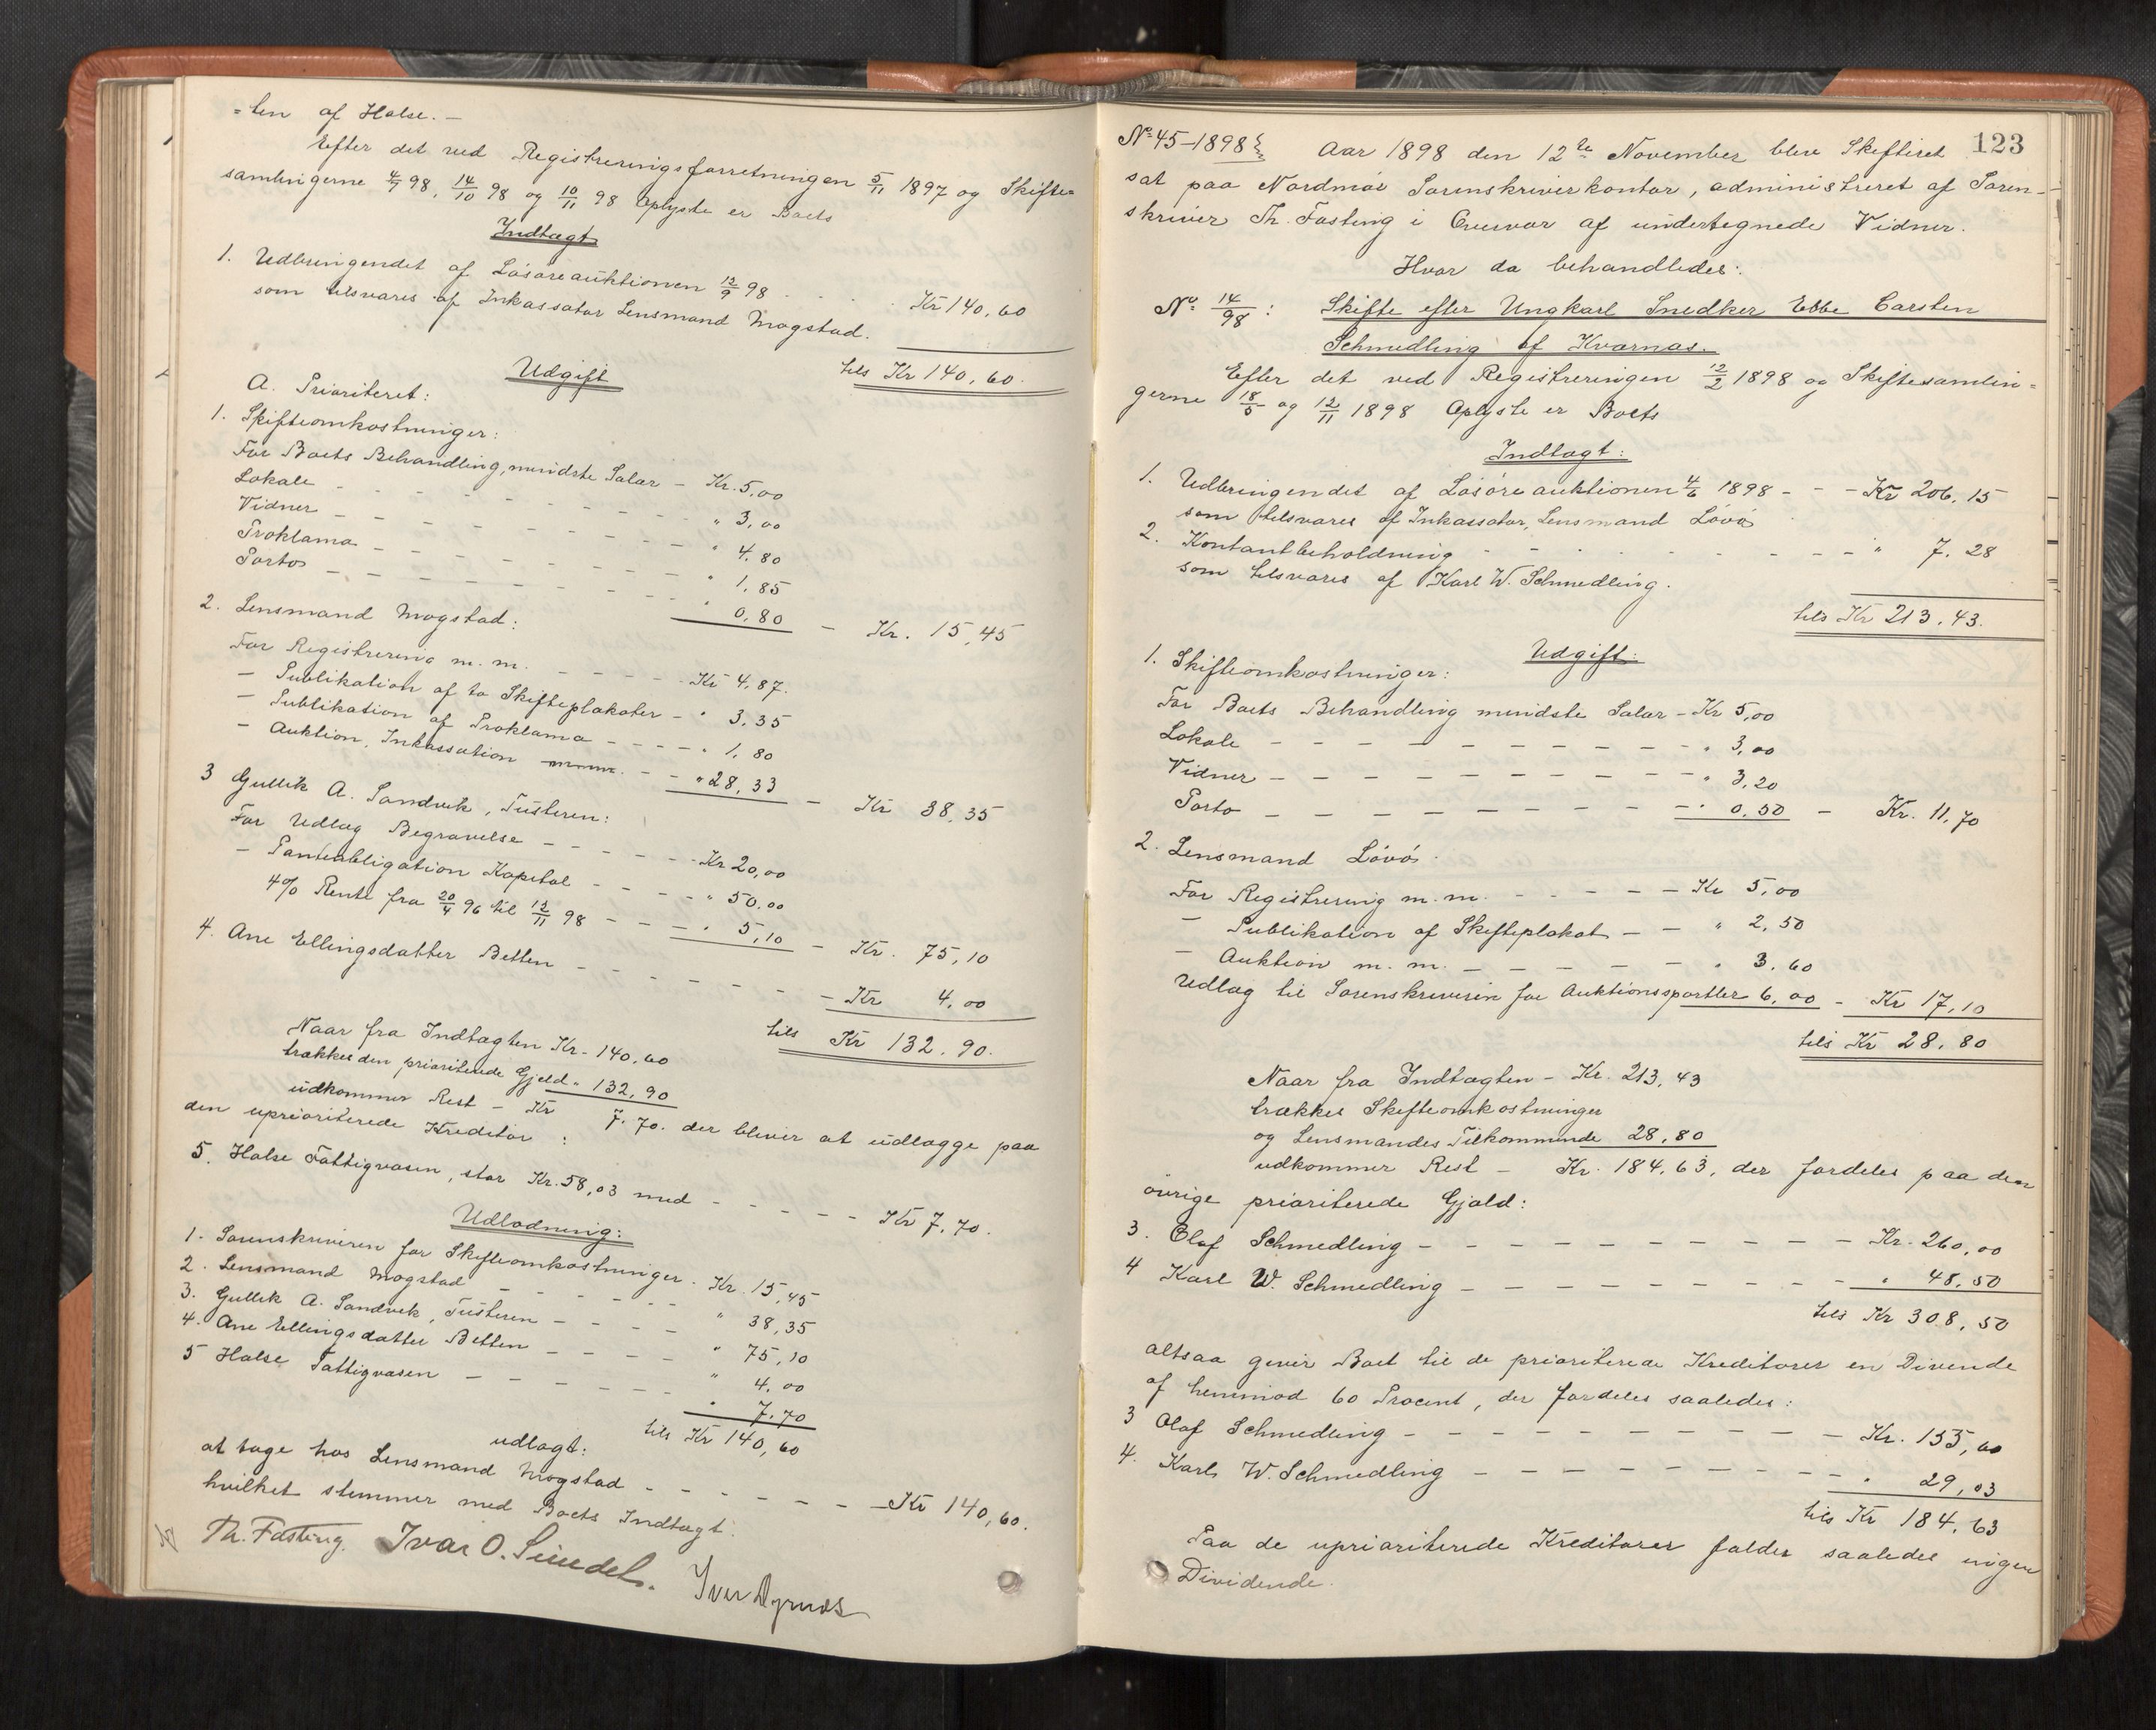 =ten af Halse. —
Efter det ved Registreringsforretningen 5/11 1897 og Skifte=
samlingerne 4/7 98, 14/10 98 og 10/11 98 Oplyste er Boets
Indtægt
1. Udbringendet af Løsøreauktionen 12/9 98 . . . . Kr 140,60
som tilsvares af Inkassator Lensmand Mogstad.
tils Kr 140,60.
Udgift
A. Prioriteret:
1. Skifteomkostninger:
For Boets Behandling, mindste Salar — Kr. 5,00
Lokale — — — — — " 3,00
Vidner — — — — — " 4,80
Proklama — — — — — " 1,85
Porto — — — — — " 0,80 — Kr. 15,45
2. Lensmand Mogstad:
For Registrering m. m. — — — — Kr 4,87.
— Publikation af to Skifteplakater — " 3,35
— Publikation af Proklama — — — — " 1,80
— Auktion, Inkassation — — " 28,33 — Kr 38,35
3 Gullik A. Sandvik, Tusteren:
For Udlæg Begravelse — — — — — Kr 20,00
— Panteobligation Kapital — — — — " 50,00
4% Rente fra 20/4 96 til 12/11 98 — — — " 5,10 — Kr. 75,10
4. Ane Ellingsdatter Betten — — — — — — — Kr 4,00
tils Kr 132,90.
Naar fra Indtægten Kr. 140,60
trækkes den prioriterede Gjeld " 132,90
udkommer Rest — Kr 7.70. der bliver at udlægge paa
den uprioriterede Kreditor:
5. Halse Fattigvæsen, stor Kr. 58,03 med — — — — — Kr 7,70.
Udlodning:
1. Sorenskriveren for Skifteomkostninger. Kr. 15,45
2. Lensmand Mogstad — — — — — — " 38,35
3. Gullik A. Sandvik, Tusteren — — — — " 75,10
4. Ane Ellingsdatter Betten — — — — " 4,00
5 Halse Fattigvæsen — — — — — — " 7,70
tils Kr 140,60
udlagt:
at tage hos Lensmand Mogstad — — — — — — — Kr 140,60.
hvilket stemmer med Boets Indtægt.
Th. Fasting. Ivar O. Iver
123
No 45—1898 Aar 1898 den 12te November blev Skifteret
sat paa Nordmør Sorenskriverkontor, administreret af Soren-
skriver Th. Fasting i Overvær af undertegnede Vidner.
Hvor da behandledes:
No 14/98: Skifte efter Ungkarl Snedker Ebbe Carsten
Schmedling af Kvernæs.
Efter det ved Registreringen 12/2 1898 og Skiftesamlin=
gerne 18/5 og 12/11 1898 Oplyste er Boets
Indtægt:
1. Udbringendet af Løsøreauktionen 4/6 1898 — — — Kr 206,15
som tilsvares af Inkassator, Lensmand Løvø
2. Kontantbeholdning — — — — — — " 7.28
som tilsvares af Karl W. Schmedling.
tils Kr 213,43.
Udgift:
1. Skifteomkostninger:
For Boets Behandling mindste Salar — Kr 5,00
Lokale — — — — — — — — — " 3,00
Vidner — — — — — — — — — " 3,20
Porto — — — — — — — — — " 0,50 — Kr. 11,70
2. Lensmand Løvø.
For Registrering m. m. — — — — Kr 5,00
— Publikation af Skifteplakat — — " 2,50
— Auktion m. m. — — — — — " 3,60
Udlæg til Sorenskriveren for Auktionssportler 6,00 — Kr 17,10
tils Kr 28,80
Naar fra Indtægten — Kr. 213,43
trækkes Skifteomkostninger
og Lensmandes Tilkommende 28,80
udkommer Rest — Kr. 184,63, der fordeles paa den
øvrige prioriterede Gjæld:
3. Olaf Schmedling — — — — — — — — — Kr. 260,00
4 Karl W. Schmedling — — — — — — — — " 48,50
tils Kr 308,50
altsaa giver Boet til de prioriterede Kreditorer en Divende
af henimod 60 Procent, der fordeles saaledes:
3 Olaf Schmedling — — — — — — — — — Kr. 155,60
4. Karl W. Schmedling — — — — — — — — " 29,03
tils Kr 184,63
Paa de uprioriterede Kreditorer falder saaledes ingen
Dividende.